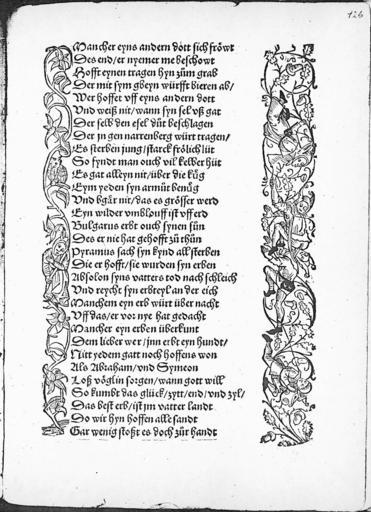 126
Mancher eyns andern dott sich fröwt
Des end/er nyemer me beschowt
Hofft eynen tragen hyn zům grab
Der mit sym gbeyn würfft bieren ab/
Wer hoffet vff eyns andern dott
Vnd weiß nit/wann syn sel vß gat
Der selb den esel důt beschlagen
Der jn gen narrenberg würt tragen/
Es sterben jung/starck frölich lüt
So fyndt man ouch vil kelber hüt
Es gat alleyn nit/über die kůg
Eym yeden syn armůt benůg
Vnd bgär nit/das es grösser werd
Eyn wilder vmblouff ist vff erd
Bulgarus erbt ouch synen sůn
Des er nie hat gehofft zů thůn
Pyramus sach syn kynd all sterben
Die er hofft/sie wurden syn erben
Absolon syns vatters tod nach schleich
Vnd reycht syn erbteyl an der eich
Manchem eyn erb würt über nacht
Vff das/er vor nye hat gedacht
Mancher eyn erben überkunt
Dem lieber wer/jnn erbt eyn hundt/
Nitt yedem gatt noch hoffens won
Als Abraham/vnd Symeon
Loß vöglin sorgen/wann gott will
So kumbt das glück/zytt/end/vnd zyl/
Das best erb/ist jm vatter landt
Do wir hyn hoffen alle sandt
Gar wenig stoßt es doch zůr handt